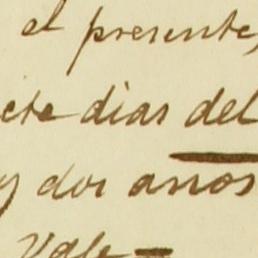 el presente,
ete dias del
y dos anos
Vale